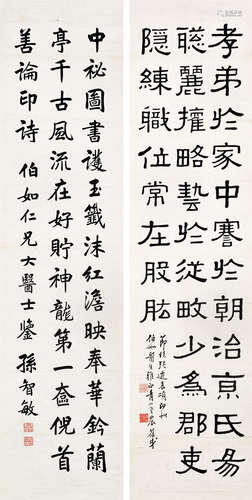 孝弟於家中謇於朝治京易
聡麗權略藝於從畋少為郡吏
隱練職位常在股肱
中祕圖書護玉籤沫紅澹映奉華鈐蘭
亭千古風流在好貯神龍第一奩倪首
善論印詩 伯如仁兄大醫士鑒 孫智敏